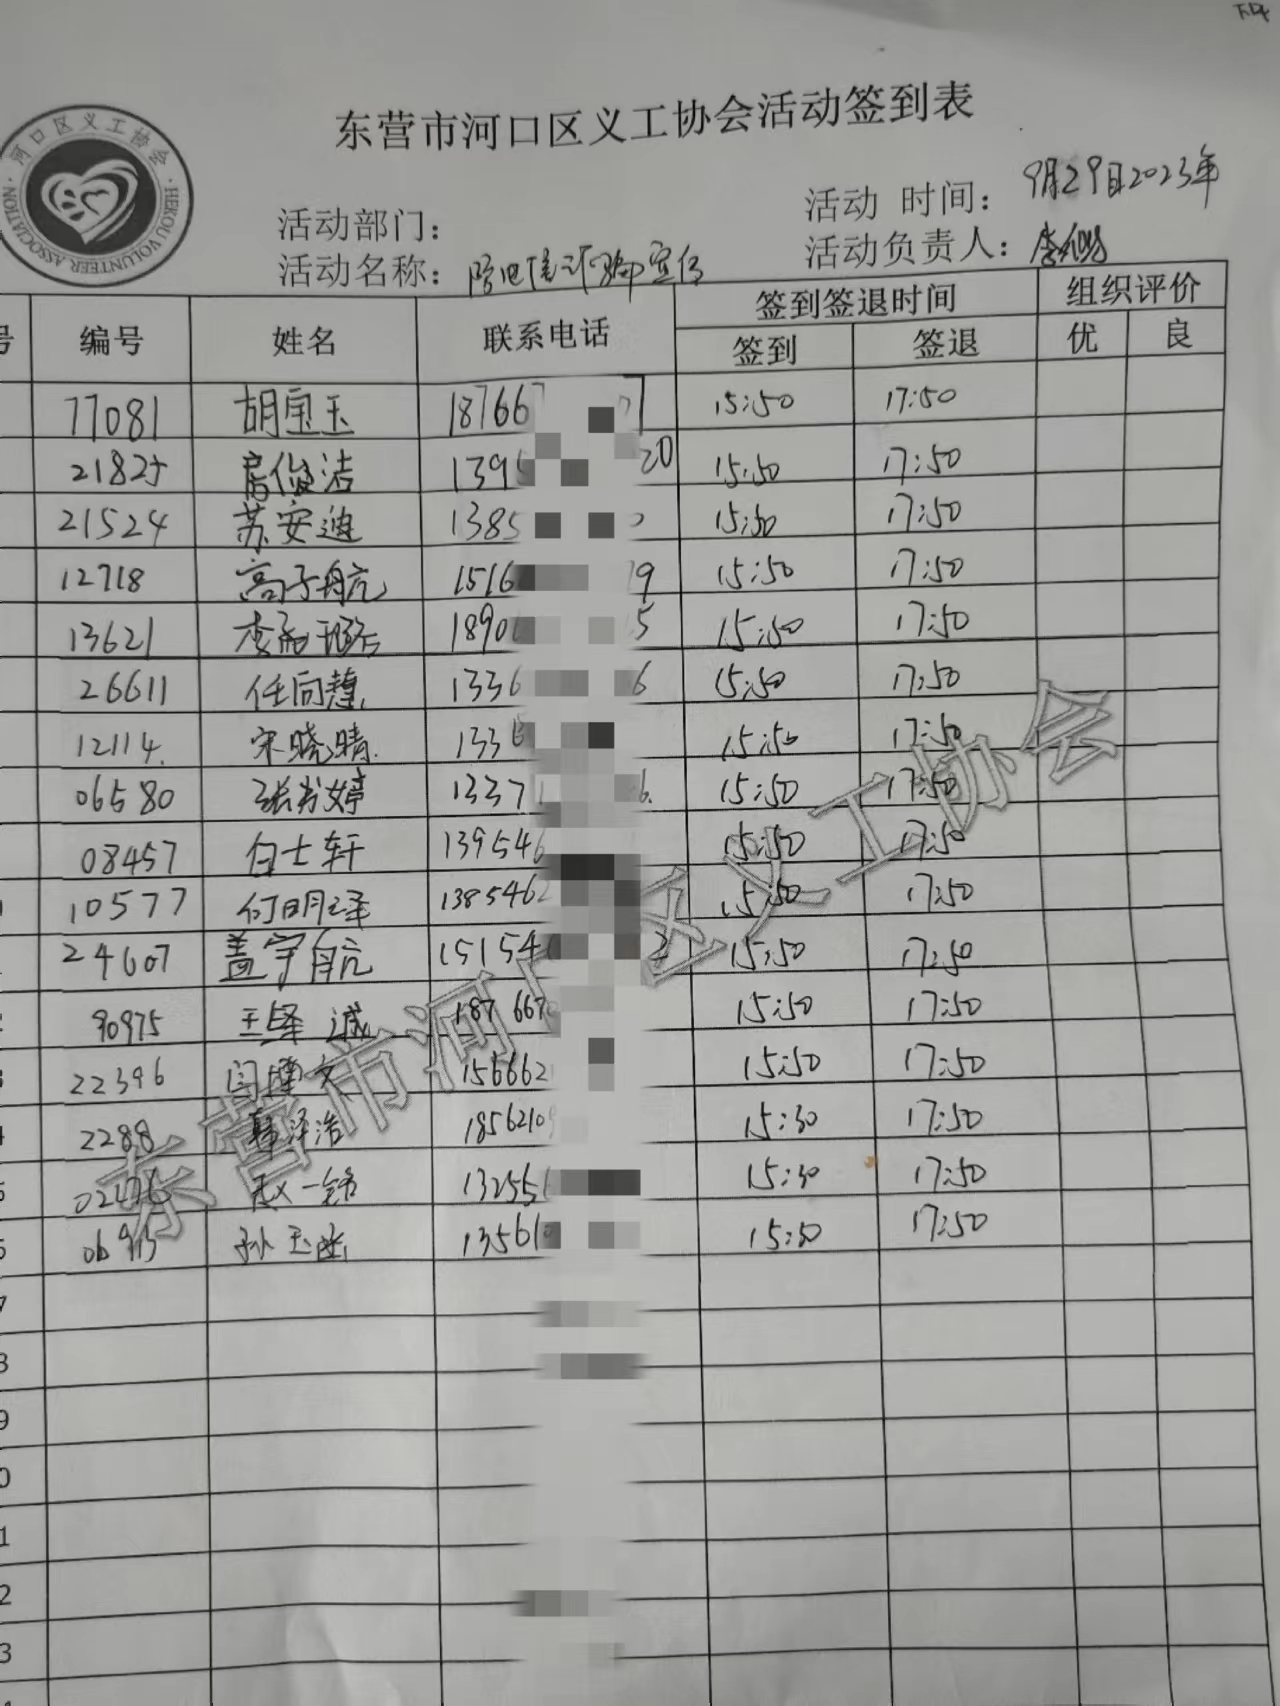 东营市河口区义工协会活动签到表
河口区义工协会
HEKOU VOLUNTEER ASSOCIATION
活动部门：
活动时间： 9月29日2023年
活动名称： 防电信诈骗宣传
活动负责人：
号 编号 姓名 联系电话 签到签退时间 组织评价
签到 签退 优 良
77081 胡宝玉 18766 7 15:50 17:50
2182 房俊洁 139 20 15:50 17:50
21524 苏安迪 1385 15:50 17:50
12718 高子航 1516 9 15:50 17:50
13621 1890 5 15:50 17:50
26611 任向慧 1336 6 15:50 17:50
12114 宋晓晴 133 15:50 17:50
06580 张书婷 1337 6 15:50 17:50
08457 白士轩 139546 15:50 17:50
10577 何明泽 1385462 15:50 17:50
24607 盖宇航 15154 2 15:50 17:50
90975 王绎诚 187667 15:50 17:50
22396 闫博文 156662 15:50 17:50
2288 韩泽浩 1856210 15:30 17:50
赵一铭 13255 15:30 17:50
孙玉 13561 15:30 17:50
东营市河口区义工协会